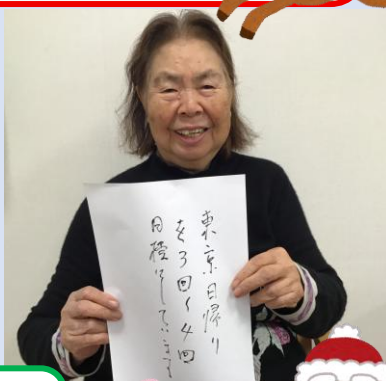 東京日帰り
を3回〜4回
目標にしています